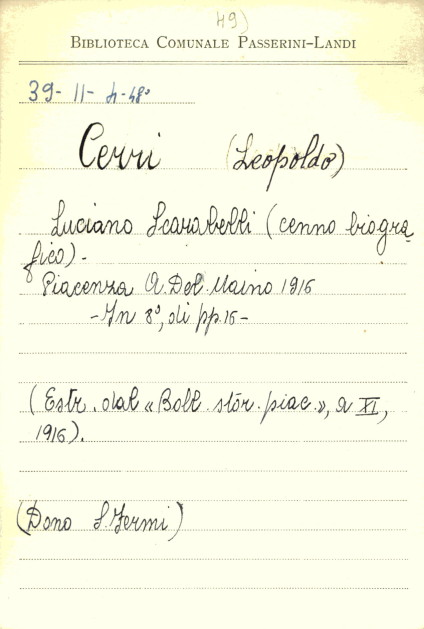 49)
BIBLIOTECA COMUNALE PASSERINI-LANDI
39- 11- h-48°
Cerri (Leopoldo)
Luciano Scarabelli (cenno biogra
fico) -
Piacenza A. Del. Maino 1916
- In 8°, di pp. 16 -
(Estr. dal « Boll. stor. piac. », a XI,
1916).
(Dono S. Fermi)